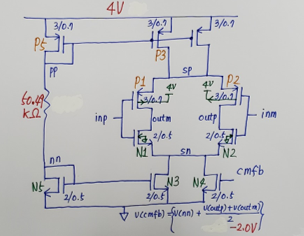 4V
3/0.7 3/0.7 3/0.7
P5 P3
pp sp
P1 4V 4V P2
3/0.7 3/0.7
inp outm outp inm
2/0.5 2/0.5
N1 sn N2
kΩ
nn
N5 N3 N4 cmfb
2/0.5 2/0.5 2/0.5
v(cmfb) = v(nn) + v(outp)+v(outm)
2
-2.0V